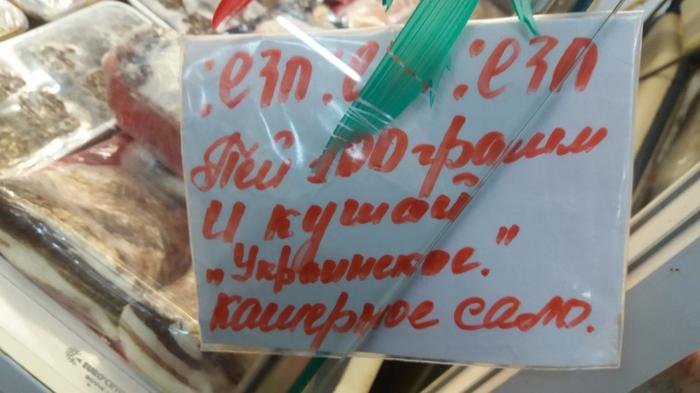 :ЕЗП
:ЕЗП
Пей 100 грамм
И кушай
„Украинское."
кашерное сало.